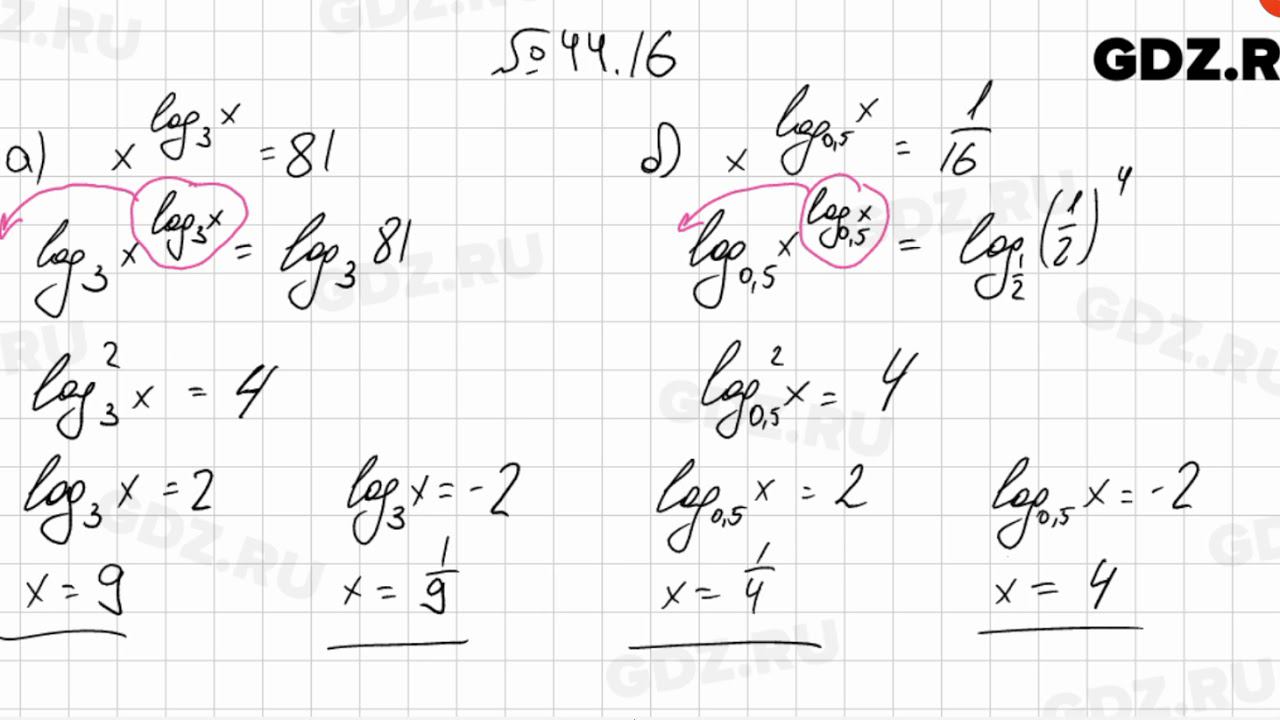 № 44.16
GDZ.R
а) x^(log_3 x) = 81
log_3 x^(log_3 x) = log_3 81
log_3^2 x = 4
log_3 x = 2
log_3 x = -2
x = 9
x = 1/9
б) x^(log_0,5 x) = 1/16
log_0,5 x^(log_0,5 x) = log_1/2 (1/2)^4
log_0,5^2 x = 4
log_0,5 x = 2
log_0,5 x = -2
x = 1/4
x = 4
GDZ.RU
GDZ.RU
GDZ.RU
GDZ.RU
GDZ.RU
GDZ.RU
GDZ.RU
GDZ.RU